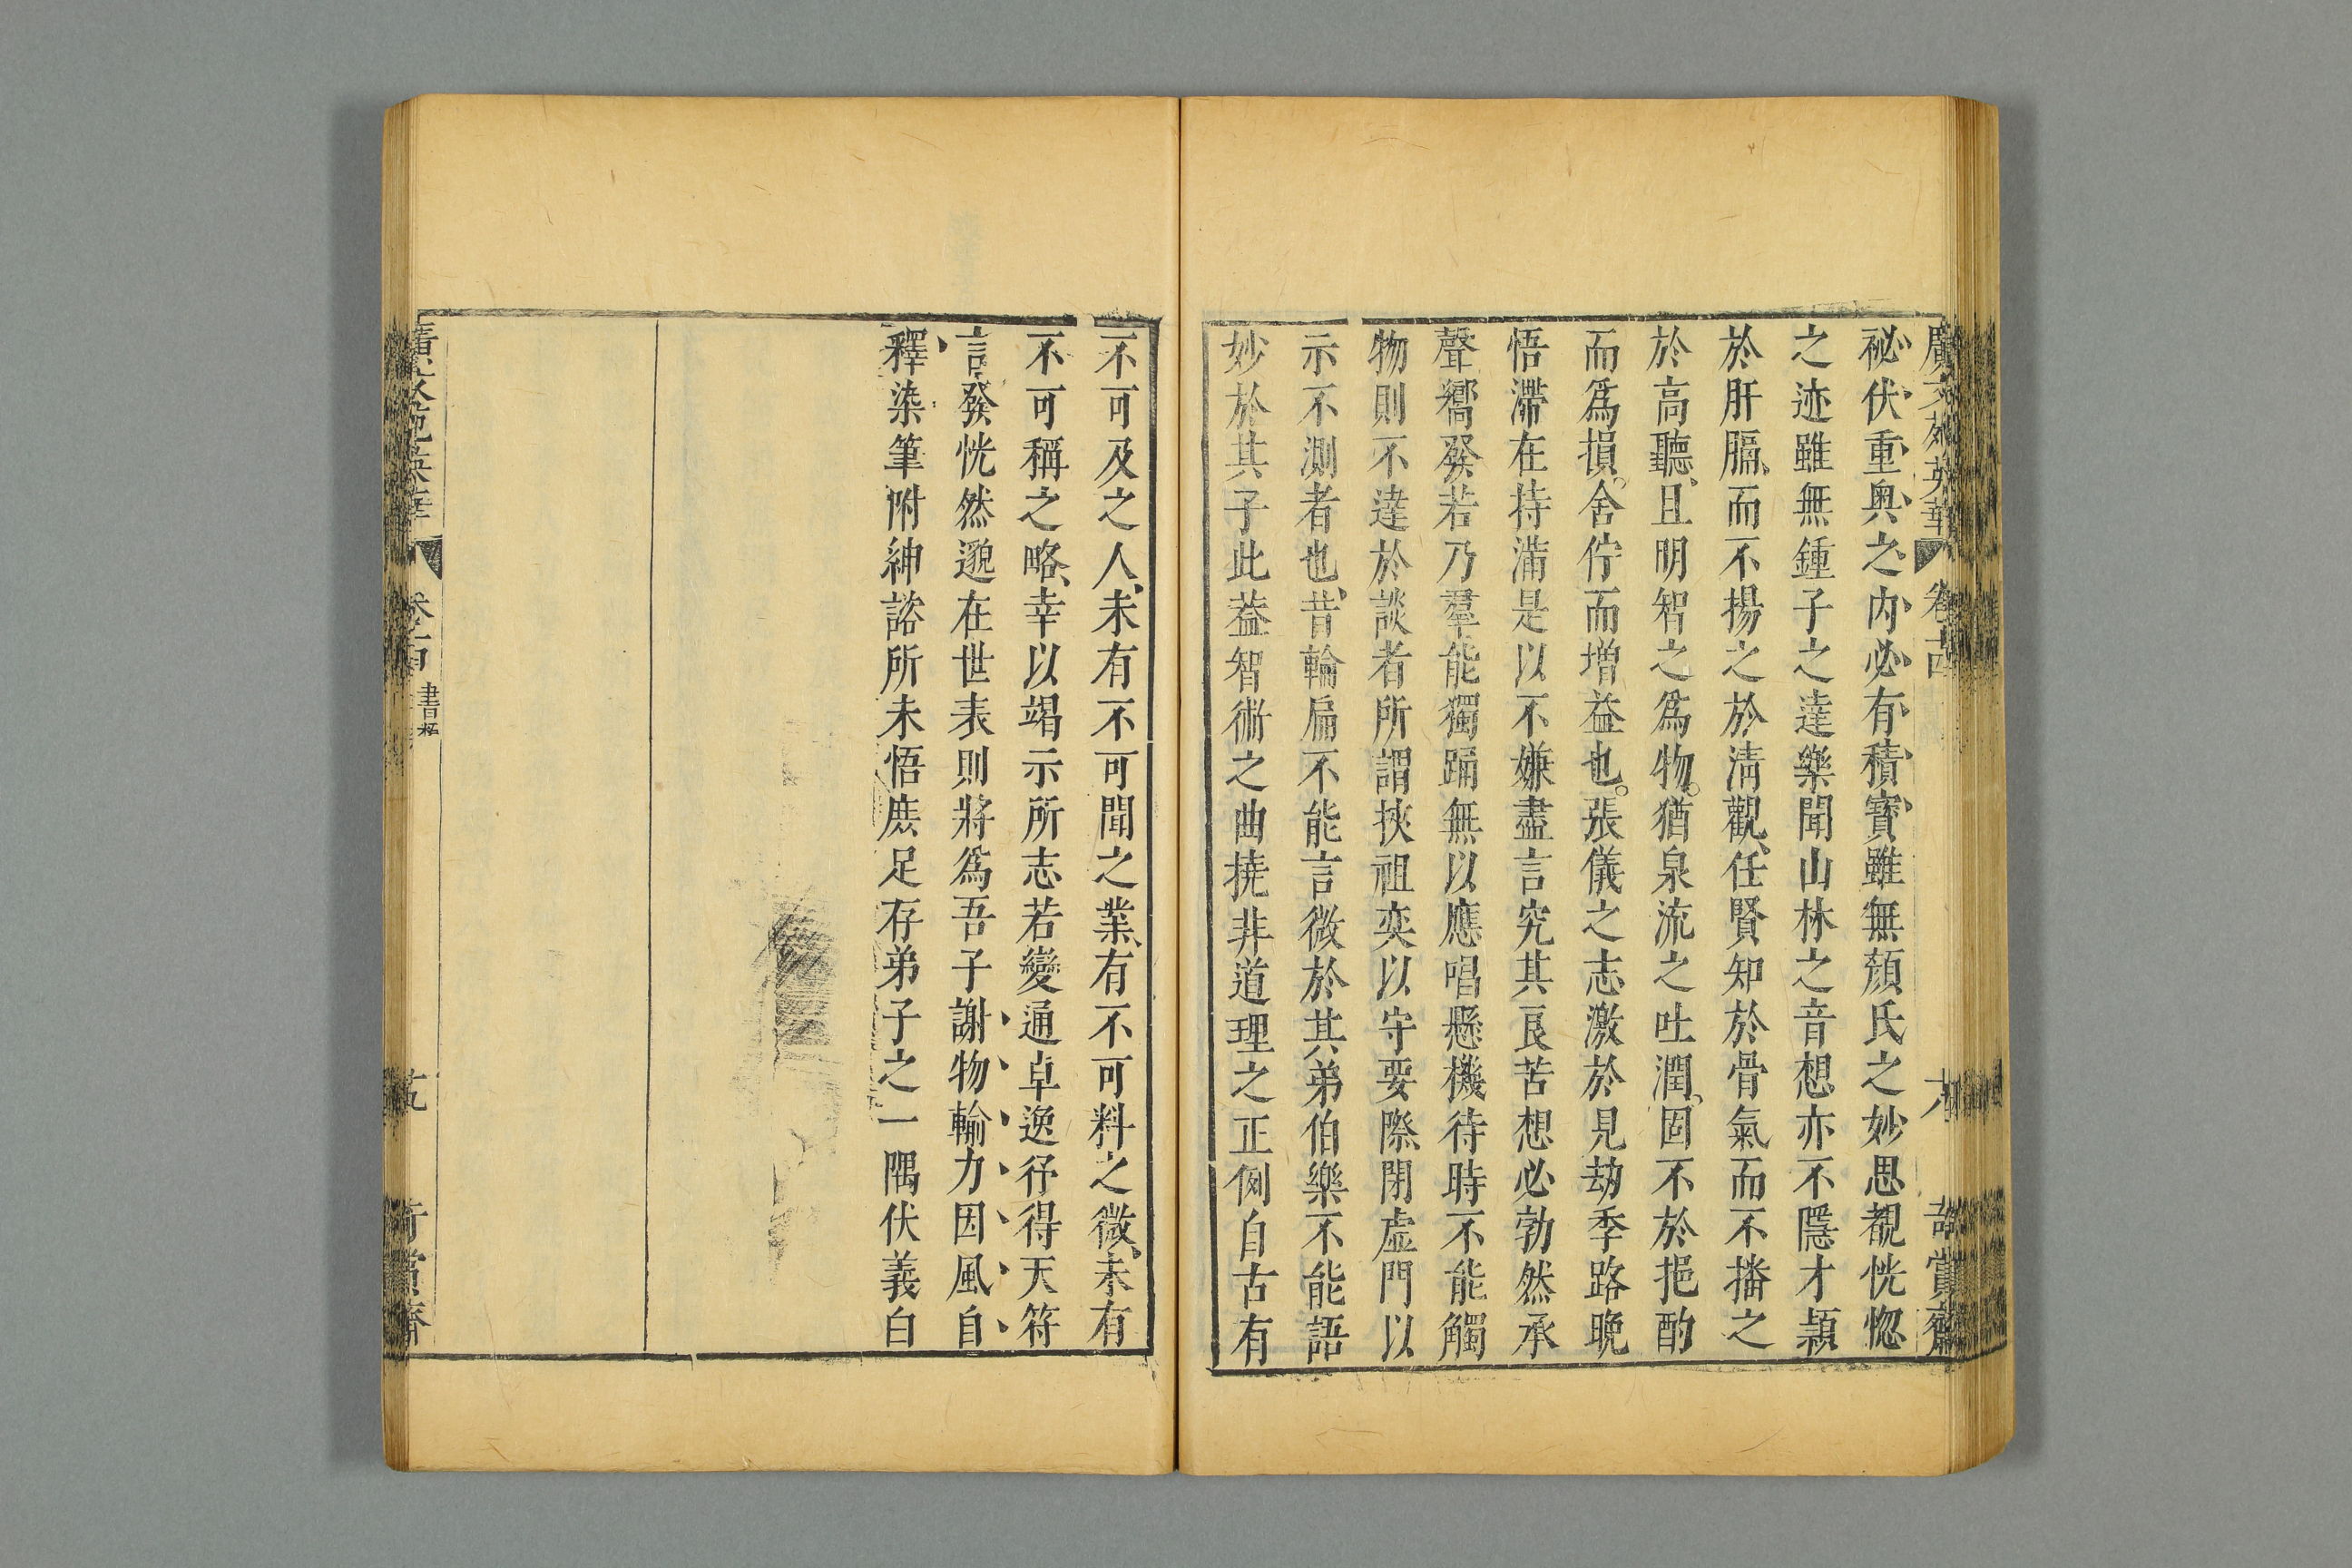 廣文苑英華 卷
祕伏重奥之內必有積寶雖無顏氏之妙思覩恍惚
之迹雖無鍾子之達樂聞山林之音想亦不隱才頴
於肝膈而不揚之於淸觀任賢知於骨氣而不播之
於高聽且明智之爲物猶泉流之吐潤固不於挹酌
而爲損舍佇而增益也張儀之志激於見劫季路晚
悟滯在持滿是以不嫌盡言究其良苦想必勃然承
聲嚮發若乃羣能獨踊無以應唱懸機待時不能觸
物則不達於談者所謂挾祖奕以守要際閉虛門以
示不測者也昔輪扁不能言微於其弟伯樂不能語
妙於其子此葢智術之曲撓非道理之正例自古有
不可及之人未有不可聞之業有不可料之微未有
不可稱之略幸以竭示所志若變通卓逸得天符
言發恍然邈在世表則將爲吾子謝物輸力因風自
釋染筆附紳諮所未悟庶足存弟子之一隅伏義白
書